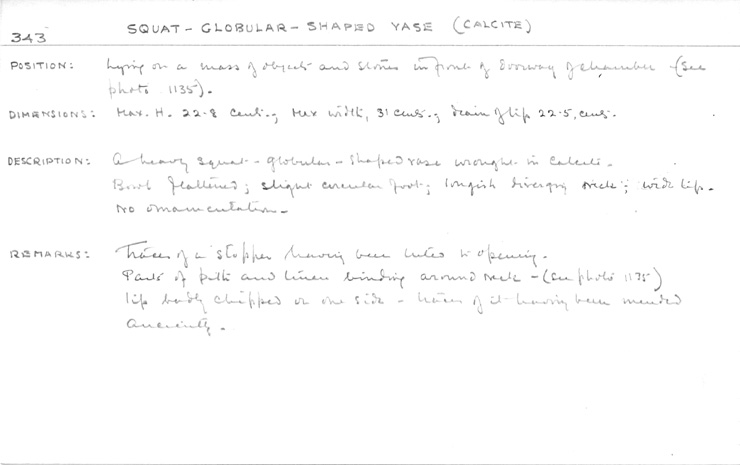 343 SQUAT-GLOBULAR-SHAPED VASE (CALCITE)
POSITION: Lying on a mass of objects and stones in front of doorway of chamber (see
photo 1135).
DIMENSIONS: Max. H. 22.8 cent.; Max width, 31 cents.; diam of lip 22.5, cents.
DESCRIPTION: A heavy squat-globular-shaped vase wrought in calcite.
Bowl flattened; slight circular foot; longish diverging neck; wide lip.
No ornamentation.
REMARKS: Traces of a stopper having been luted to opening.
Parts of pith and linen binding around neck - (see photo 1135)
lip badly chipped on one side - traces of it having been mended
anciently.